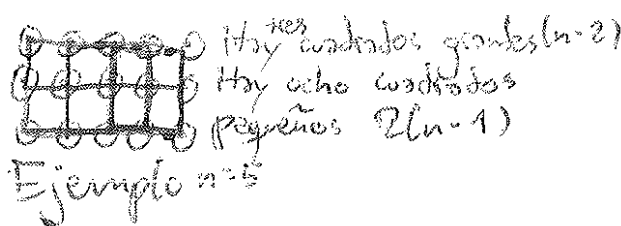 Hay tres cuadrados grandes (n-2)
Hay ocho cuadrados
pequeños 2(n-1)
Ejemplo n=5